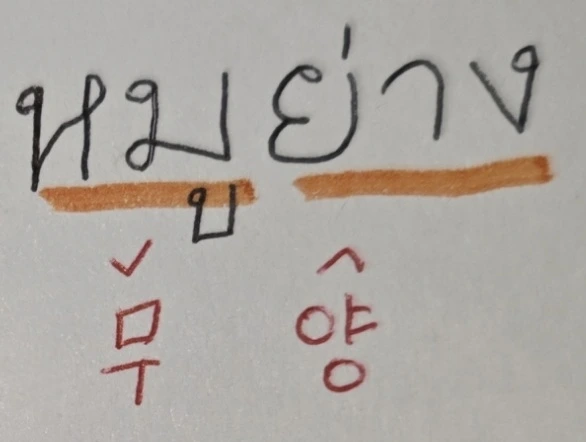 หมูย่าง
ˇ ^
무 양